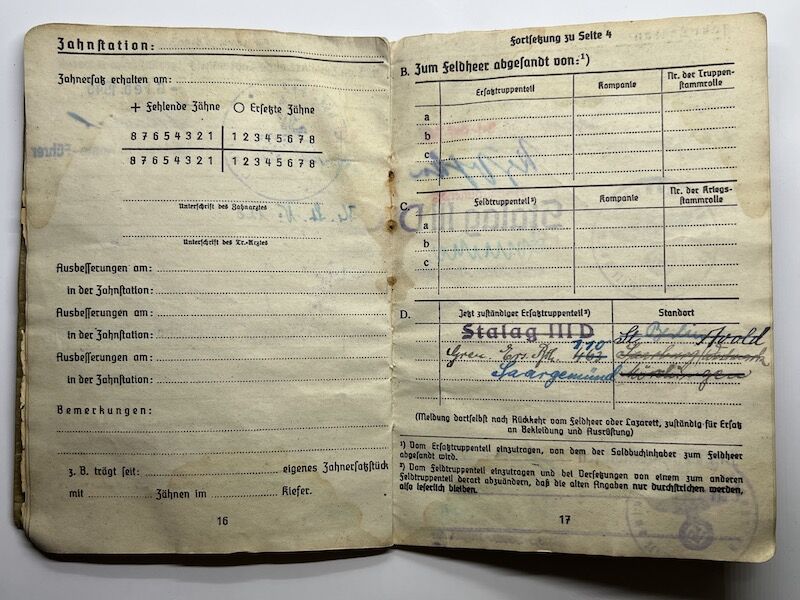 Zahnstation:
Zahnersatz erhalten am:
+ Fehlende Zähne O Ersetzte Zähne
8 7 6 5 4 3 2 1 1 2 3 4 5 6 7 8
8 7 6 5 4 3 2 1 1 2 3 4 5 6 7 8
Unterschrift des Zahnarztes
Unterschrift des Tr.-Arztes
Ausbesserungen am:
in der Zahnstation:
Ausbesserungen am:
in der Zahnstation:
Ausbesserungen am:
in der Zahnstation:
Bemerkungen:
z. B. trägt seit: eigenes Zahnersatzstück
mit Zähnen im Kiefer.
16
Fortsetzung zu Seite 4
B. Zum Feldheer abgesandt von:¹)
Ersatztruppenteil Kompanie Nr. der Truppen-
stammrolle
a
b
c
C. Feldtruppenteil²) Kompanie Nr. der Kriegs-
stammrolle
a
b
c
D. Jetzt zuständiger Ersatztruppenteil²) Standort
Stalag III D Berlin
Gren. Ers. 
Saargemünd
(Meldung dortselbst nach Rückkehr vom Feldheer oder Lazarett, zuständig für Ersatz
an Bekleidung und Ausrüstung)
¹) Vom Ersatztruppenteil einzutragen, von dem der Soldbuchinhaber zum Feldheer
abgesandt wird.
²) Vom Feldtruppenteil einzutragen und bei Versetzungen von einem zum anderen
Feldtruppenteil derart abzuändern, daß die alten Angaben nur durchstrichen werden,
also leserlich bleiben.
17